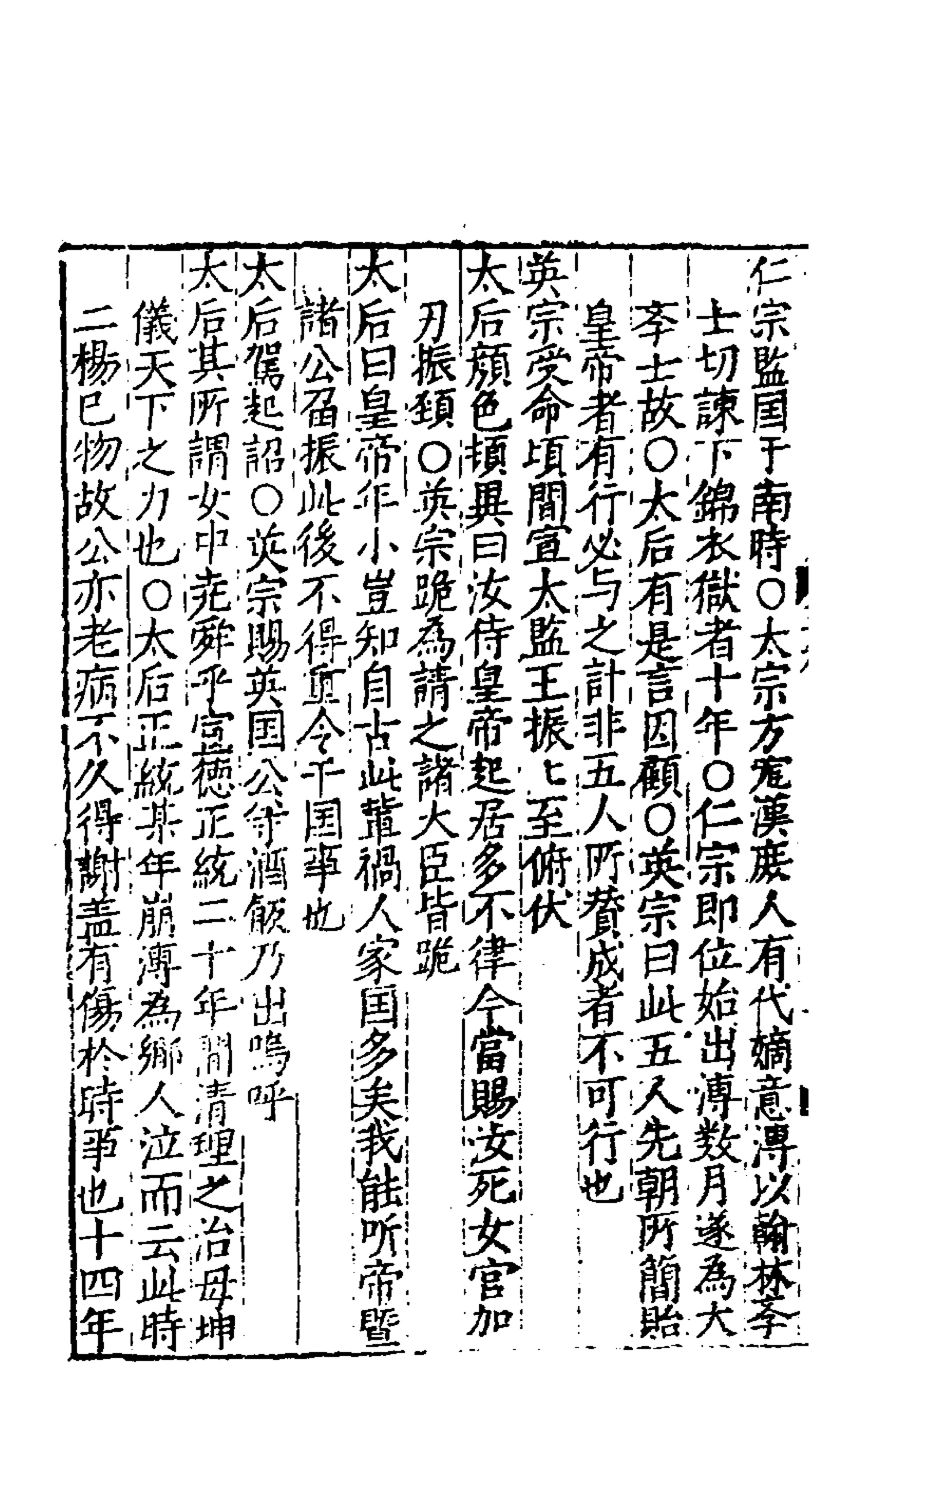 仁宗監国于南時〇太宗方寵漢庶人有代嫡意溥以翰林斈
士切諫下錦衣獄者十年〇仁宗即位始出溥数月遂為大
斈士故〇太后有是言因顧〇英宗曰此五人先朝所簡貽
皇帝者有行必与之計非五人所賛成者不可行也
英宗受命頃間宣太監王振〻至俯伏
太后顔色頓異曰汝侍皇帝起居多不律今當賜汝死女官加
刃振頚〇英宗跪為請之諸大臣皆跪
太后曰皇帝年小豈知自古此軰禍人家国多矣我能听帝暨
諸公畱振此後不得重令干国事也
太后駕起詔〇英宗賜英国公等酒飯乃出嗚呼
太后其所謂女中尭舜乎宣徳正統二十年間清理之治毋坤
儀天下之力也〇太后正統某年崩溥為郷人泣而云此時
二楊已物故公亦老病不久得謝盖有傷於時事也十四年